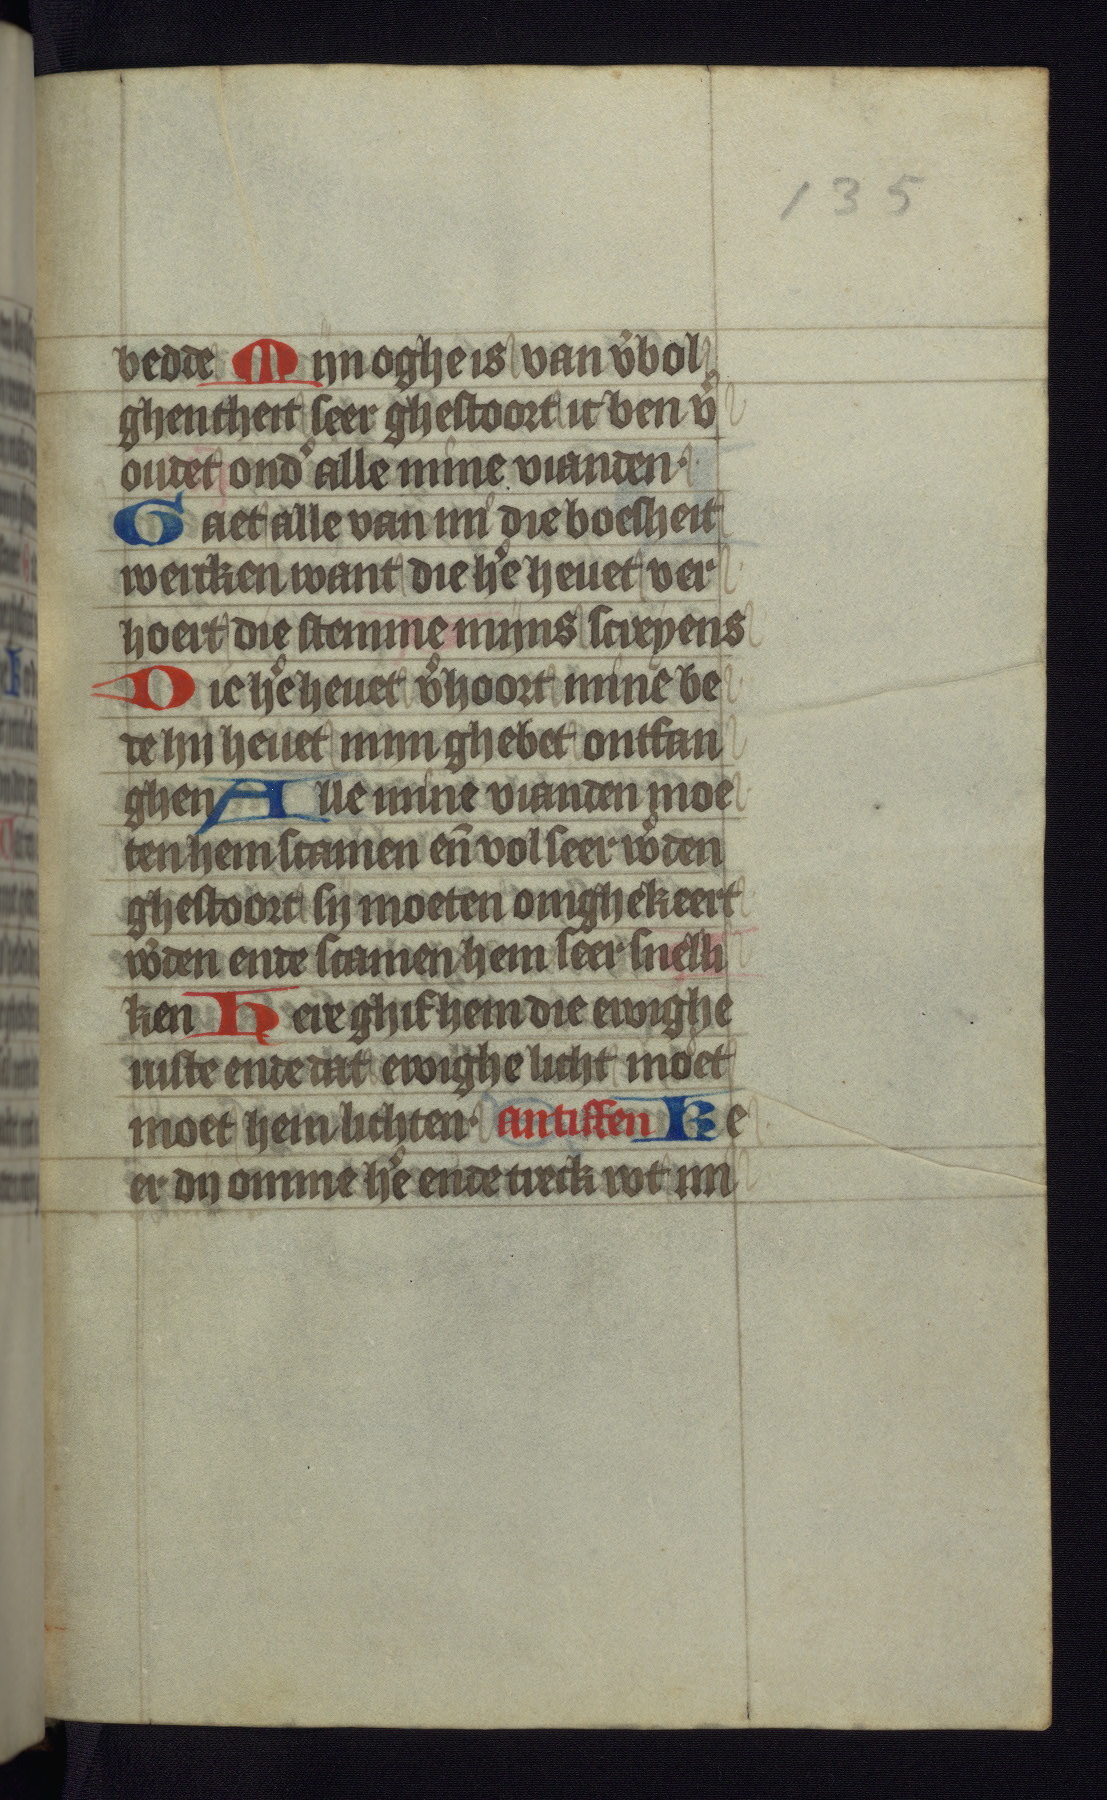 135
bedde Mijn oghe is van v̾bol
ghentheit seer ghestoort ic ben v̾
oudet ond̾ alle mine vianden·
Gaet alle van mi die boesheit
wercken want die he̾ heuet ver
hoert die stemme mijns screyens
Die he̾ heuet v̾hoort mine be
de hij heuet mijn ghebet ontfan
ghen Alle mine vianden moe
ten hem scamen en̄ vol seer w̾den
ghestoort sij moeten omghekeert
w̾den ende scamen hem seer snelli
ken Here ghif hem die ewighe
ruste ende dat ewighe licht moet
moet hem lichten· antiffen Ke
er dij omme he̾ ende treck wt mi